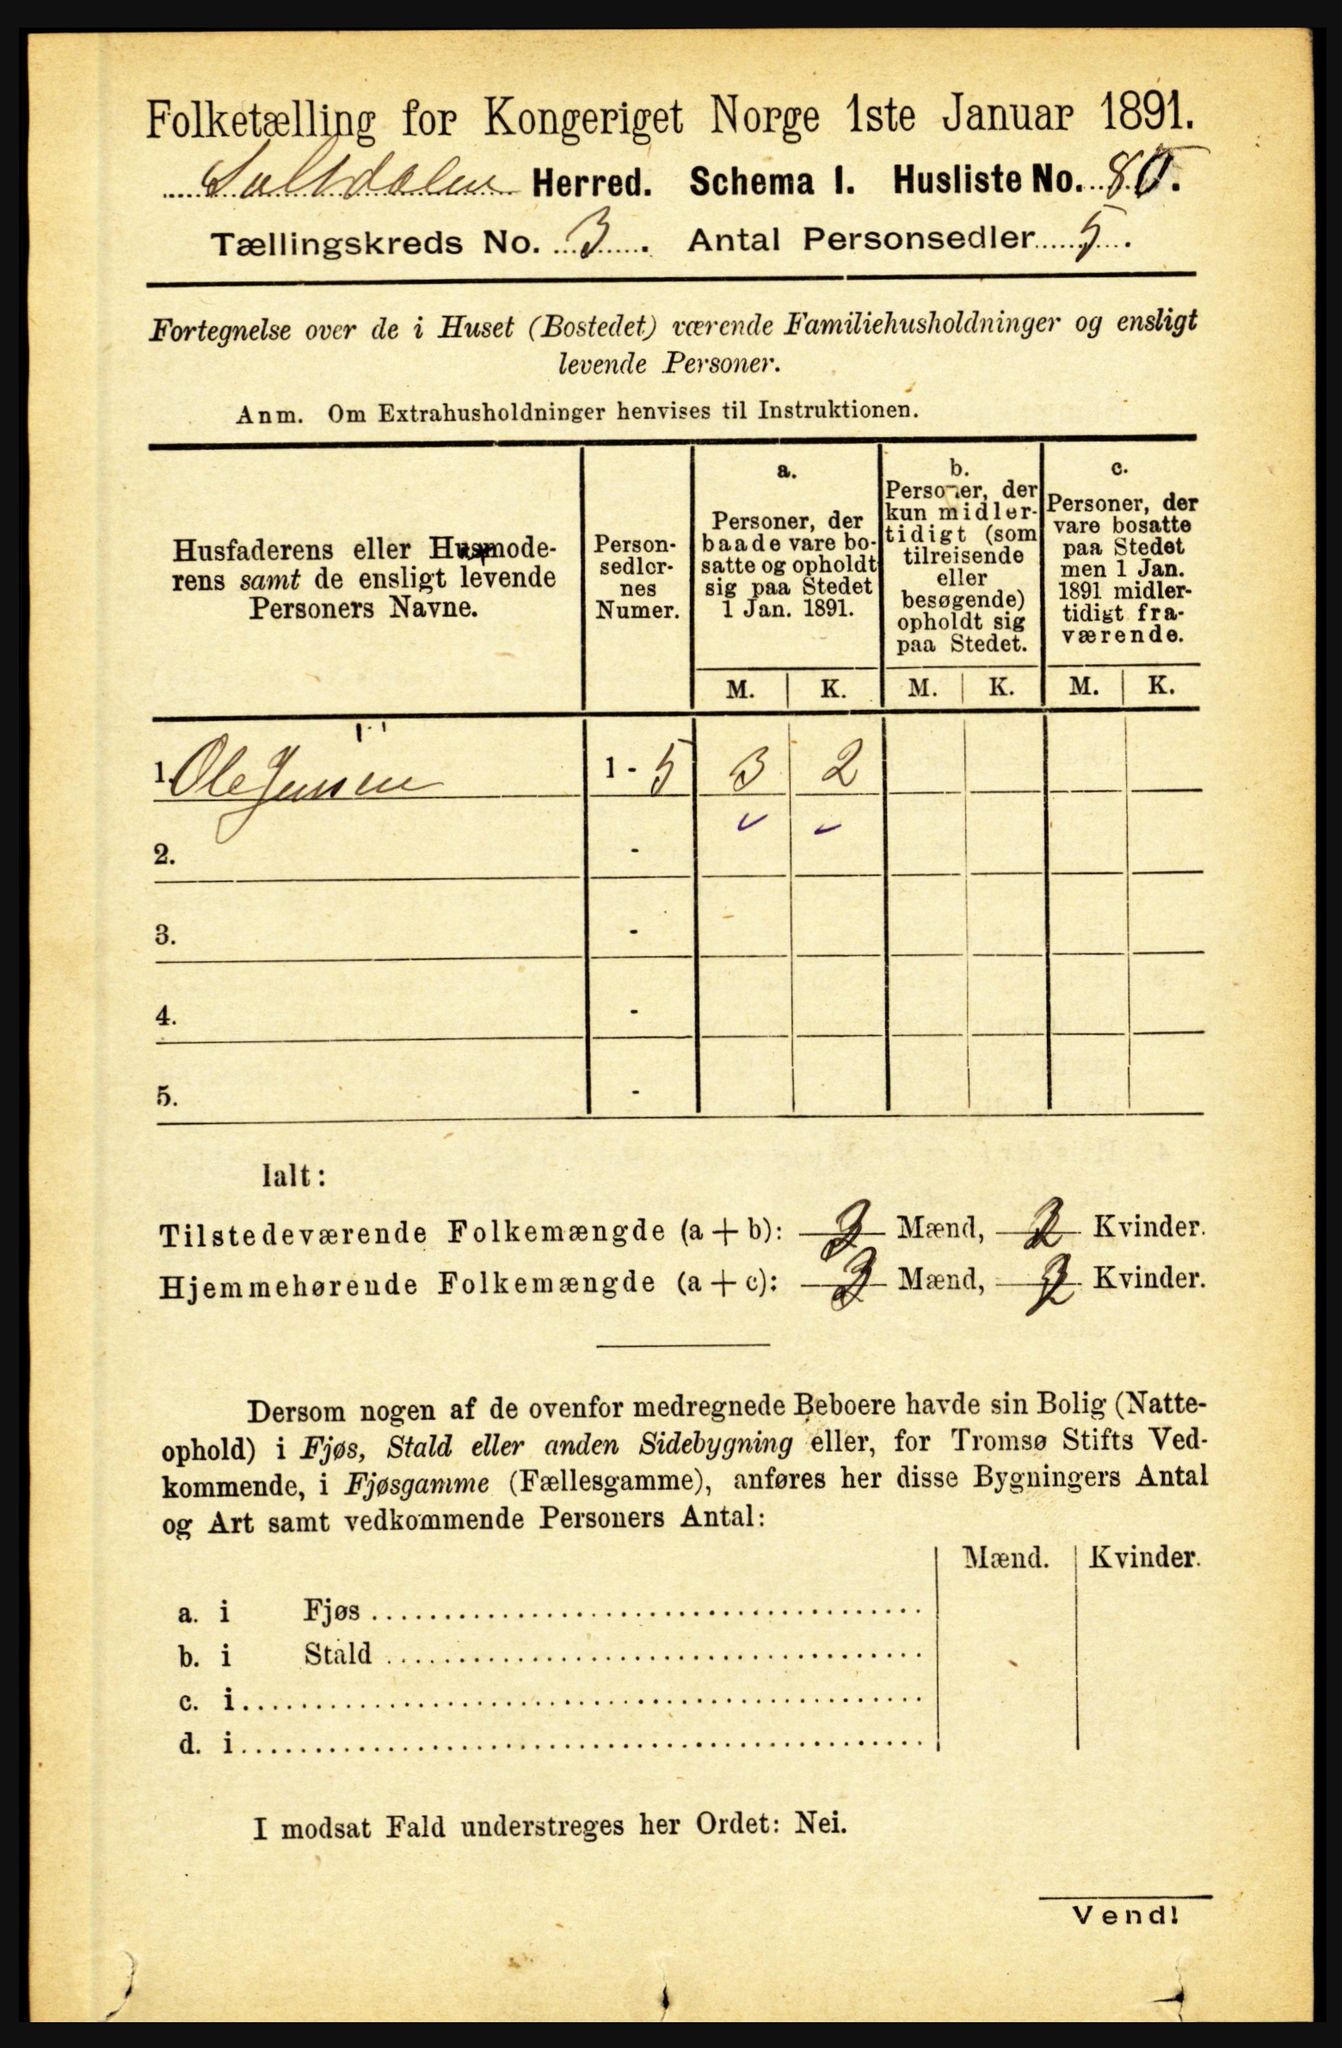 Folketælling for Kongeriget Norge 1ste Januar 1891.
Saltdalen Herred. Schema I. Husliste No. 80.
Tællingskreds No. 3. Antal Personsedler 5.
Fortegnelse over de i Huset (Bostedet) værende Familiehusholdninger og ensligt
levende Personer.
Anm. Om Extrahusholdninger henvises til Instruktionen.
Husfaderens eller Husmode-
rens samt de ensligt levende
Personers Navne.
Person-
sedler-
nes
Numer.
a.
Personer, der
baade vare bo-
satte og opholdt
sig paa Stedet
1 Jan. 1891.
b.
Personer, der
kun midler-
tidigt (som
tilreisende
eller
besøgende)
opholdt sig
paa Stedet.
c.
Personer, der
vare bosatte
paa Stedet
men 1 Jan.
1891 midler-
tidigt fra-
værende.
M. K. M. K. M. K.
1. Ole Jensen 1 - 5 3 2
2. -
3. -
4. -
5. -
Ialt:
Tilstedeværende Folkemængde (a + b): 3 Mænd, 2 Kvinder.
Hjemmehørende Folkemængde (a + c): 3 Mænd, 2 Kvinder.
Dersom nogen af de ovenfor medregnede Beboere havde sin Bolig (Natte-
ophold) i Fjøs, Stald eller anden Sidebygning eller, for Tromsø Stifts Ved-
kommende, i Fjøsgamme (Fællesgamme), anføres her disse Bygningers Antal
og Art samt vedkommende Personers Antal:
Mænd. Kvinder.
a. i Fjøs
b. i Stald
c. i
d. i
I modsat Fald understreges her Ordet: Nei.
Vend!